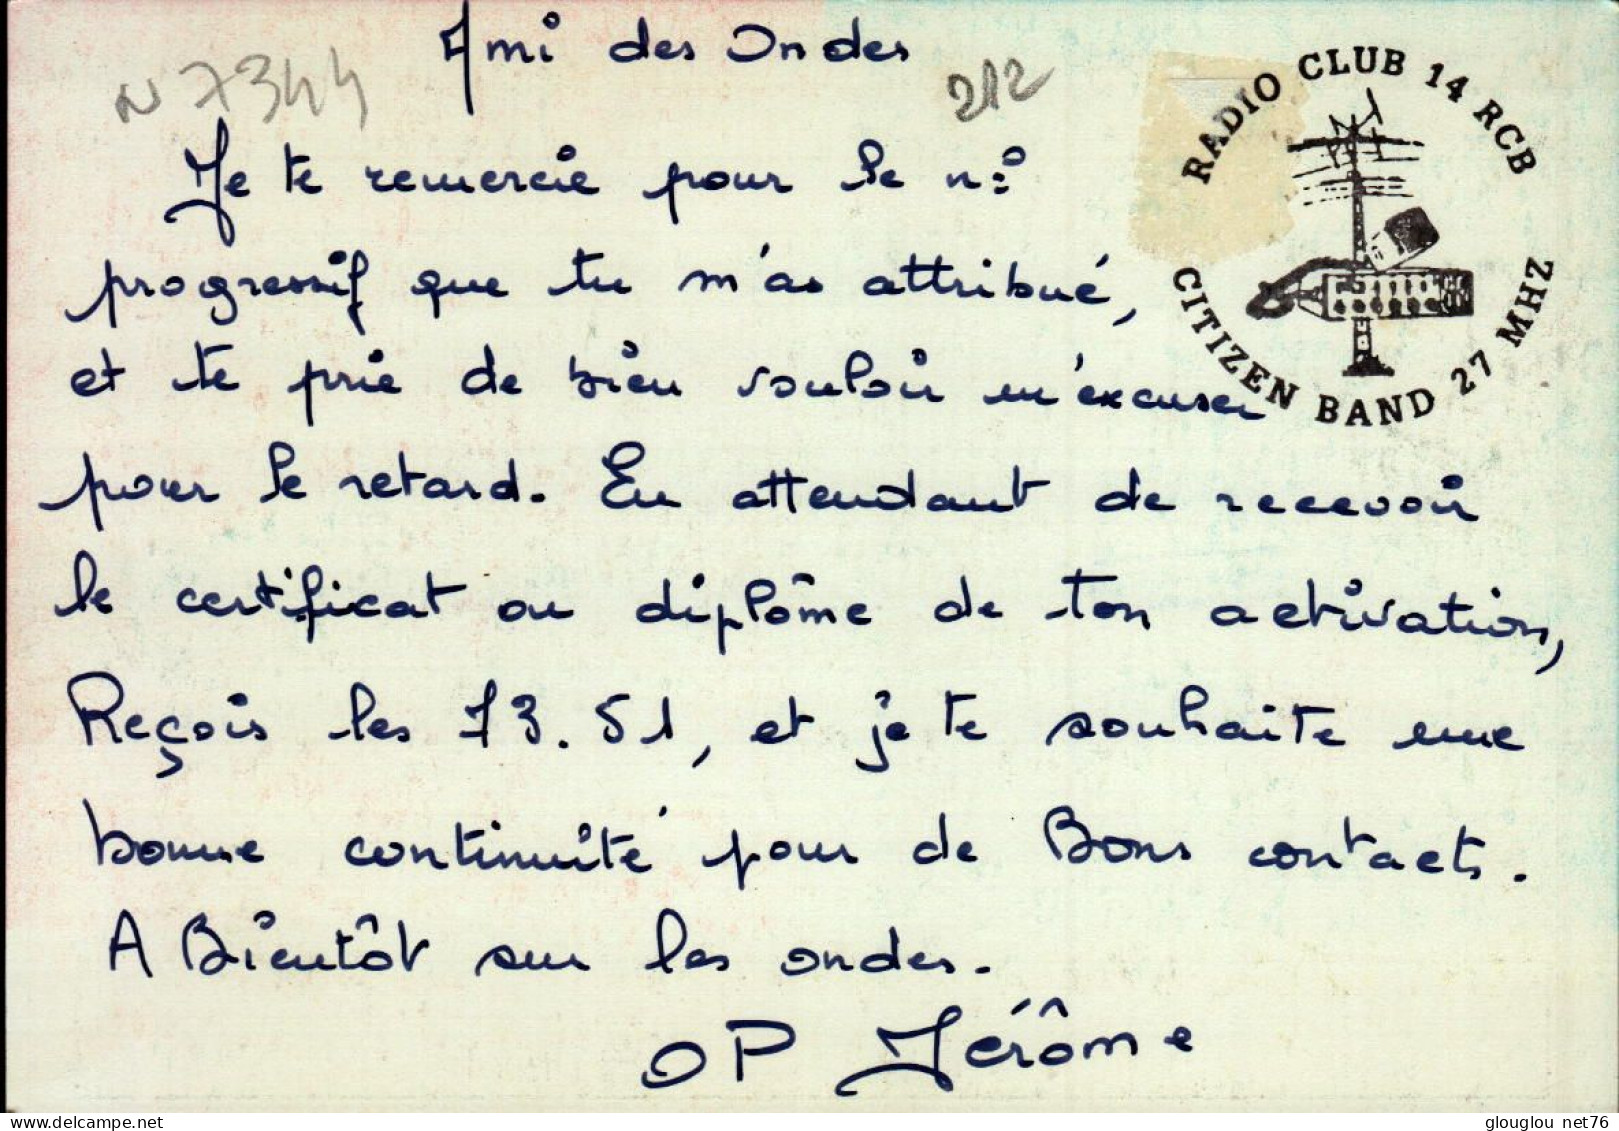 Ami des Ondes
N 7344
212
RADIO CLUB 14 RCB
CITIZEN BAND 27 MHZ
Je te remercie pour le n:°
progressif que tu m'as attribué,
et te prie de bien vouloir m'excuser
pour le retard. En attendant de recevoir
le certificat ou diplôme de ton activation,
Reçois les 73.51, et je te souhaite une
bonne continuité pour de Bons contacts.
A Bientôt sur les ondes.
OP Jérôme
delcampe.net
glouglou net76